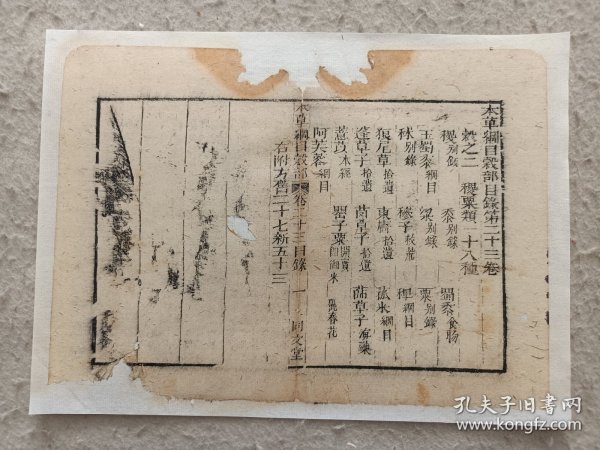 本草綱目穀部目錄第二十三卷
穀之二 稷粟類一十八種
稷別錄 黍別錄 蜀黍食物
玉蜀黍綱目 粱別錄 粟別錄
秫別錄 穇子救荒 稗綱目
狼尾草拾遺 東廧拾遺 菰米綱目
蓬草子拾遺 䔰草子拾遺 蒒草子海藥
薏苡本經 罌子粟開寶 即御米 麗春花
阿芙蓉綱目
右附方舊二十七新五十三
本草綱目穀部 卷二十三目錄 一 同文堂
孔夫子旧书网
www.kongfz.com